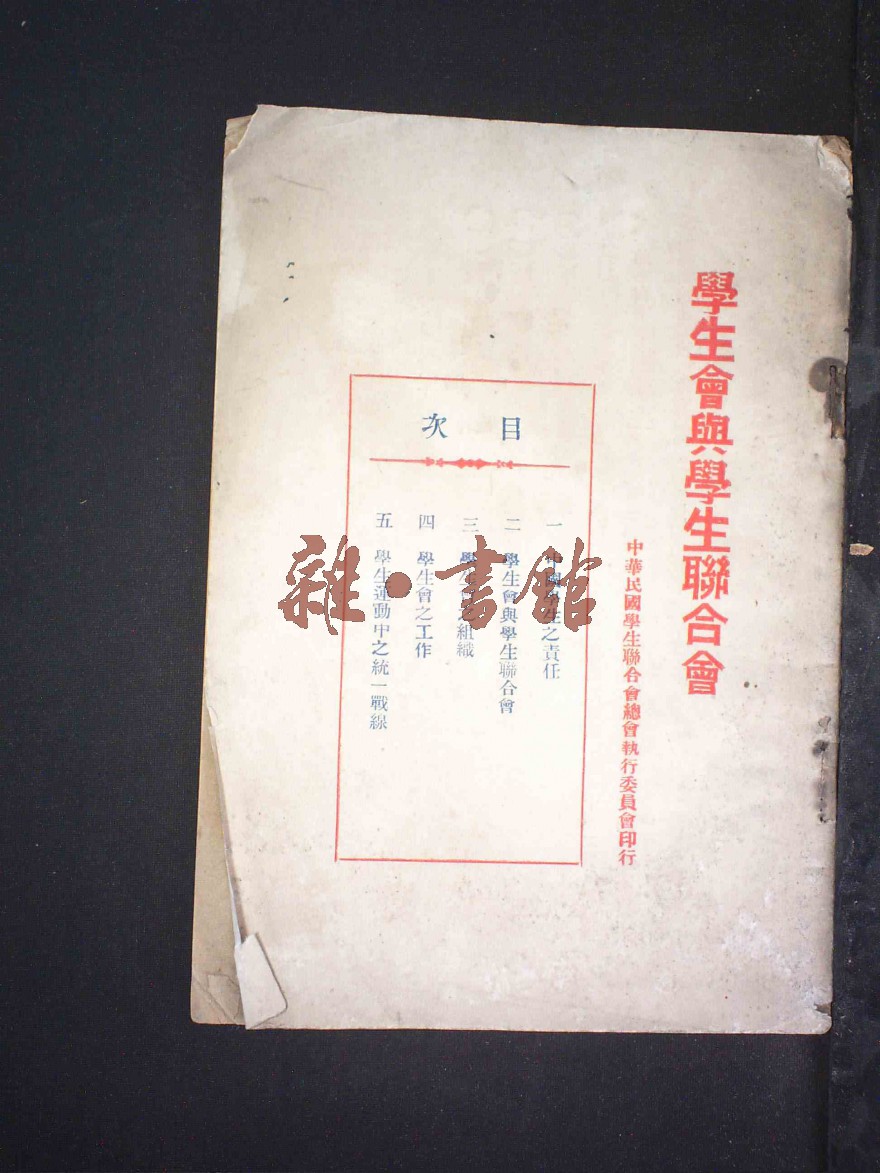 學生會與學生聯合會
中華民國學生聯合會總會執行委員會印行
目次
一 中國學生之責任
二 學生會與學生聯合會
三 學生會之組織
四 學生會之工作
五 學生運動中之統一戰線
雜·書館